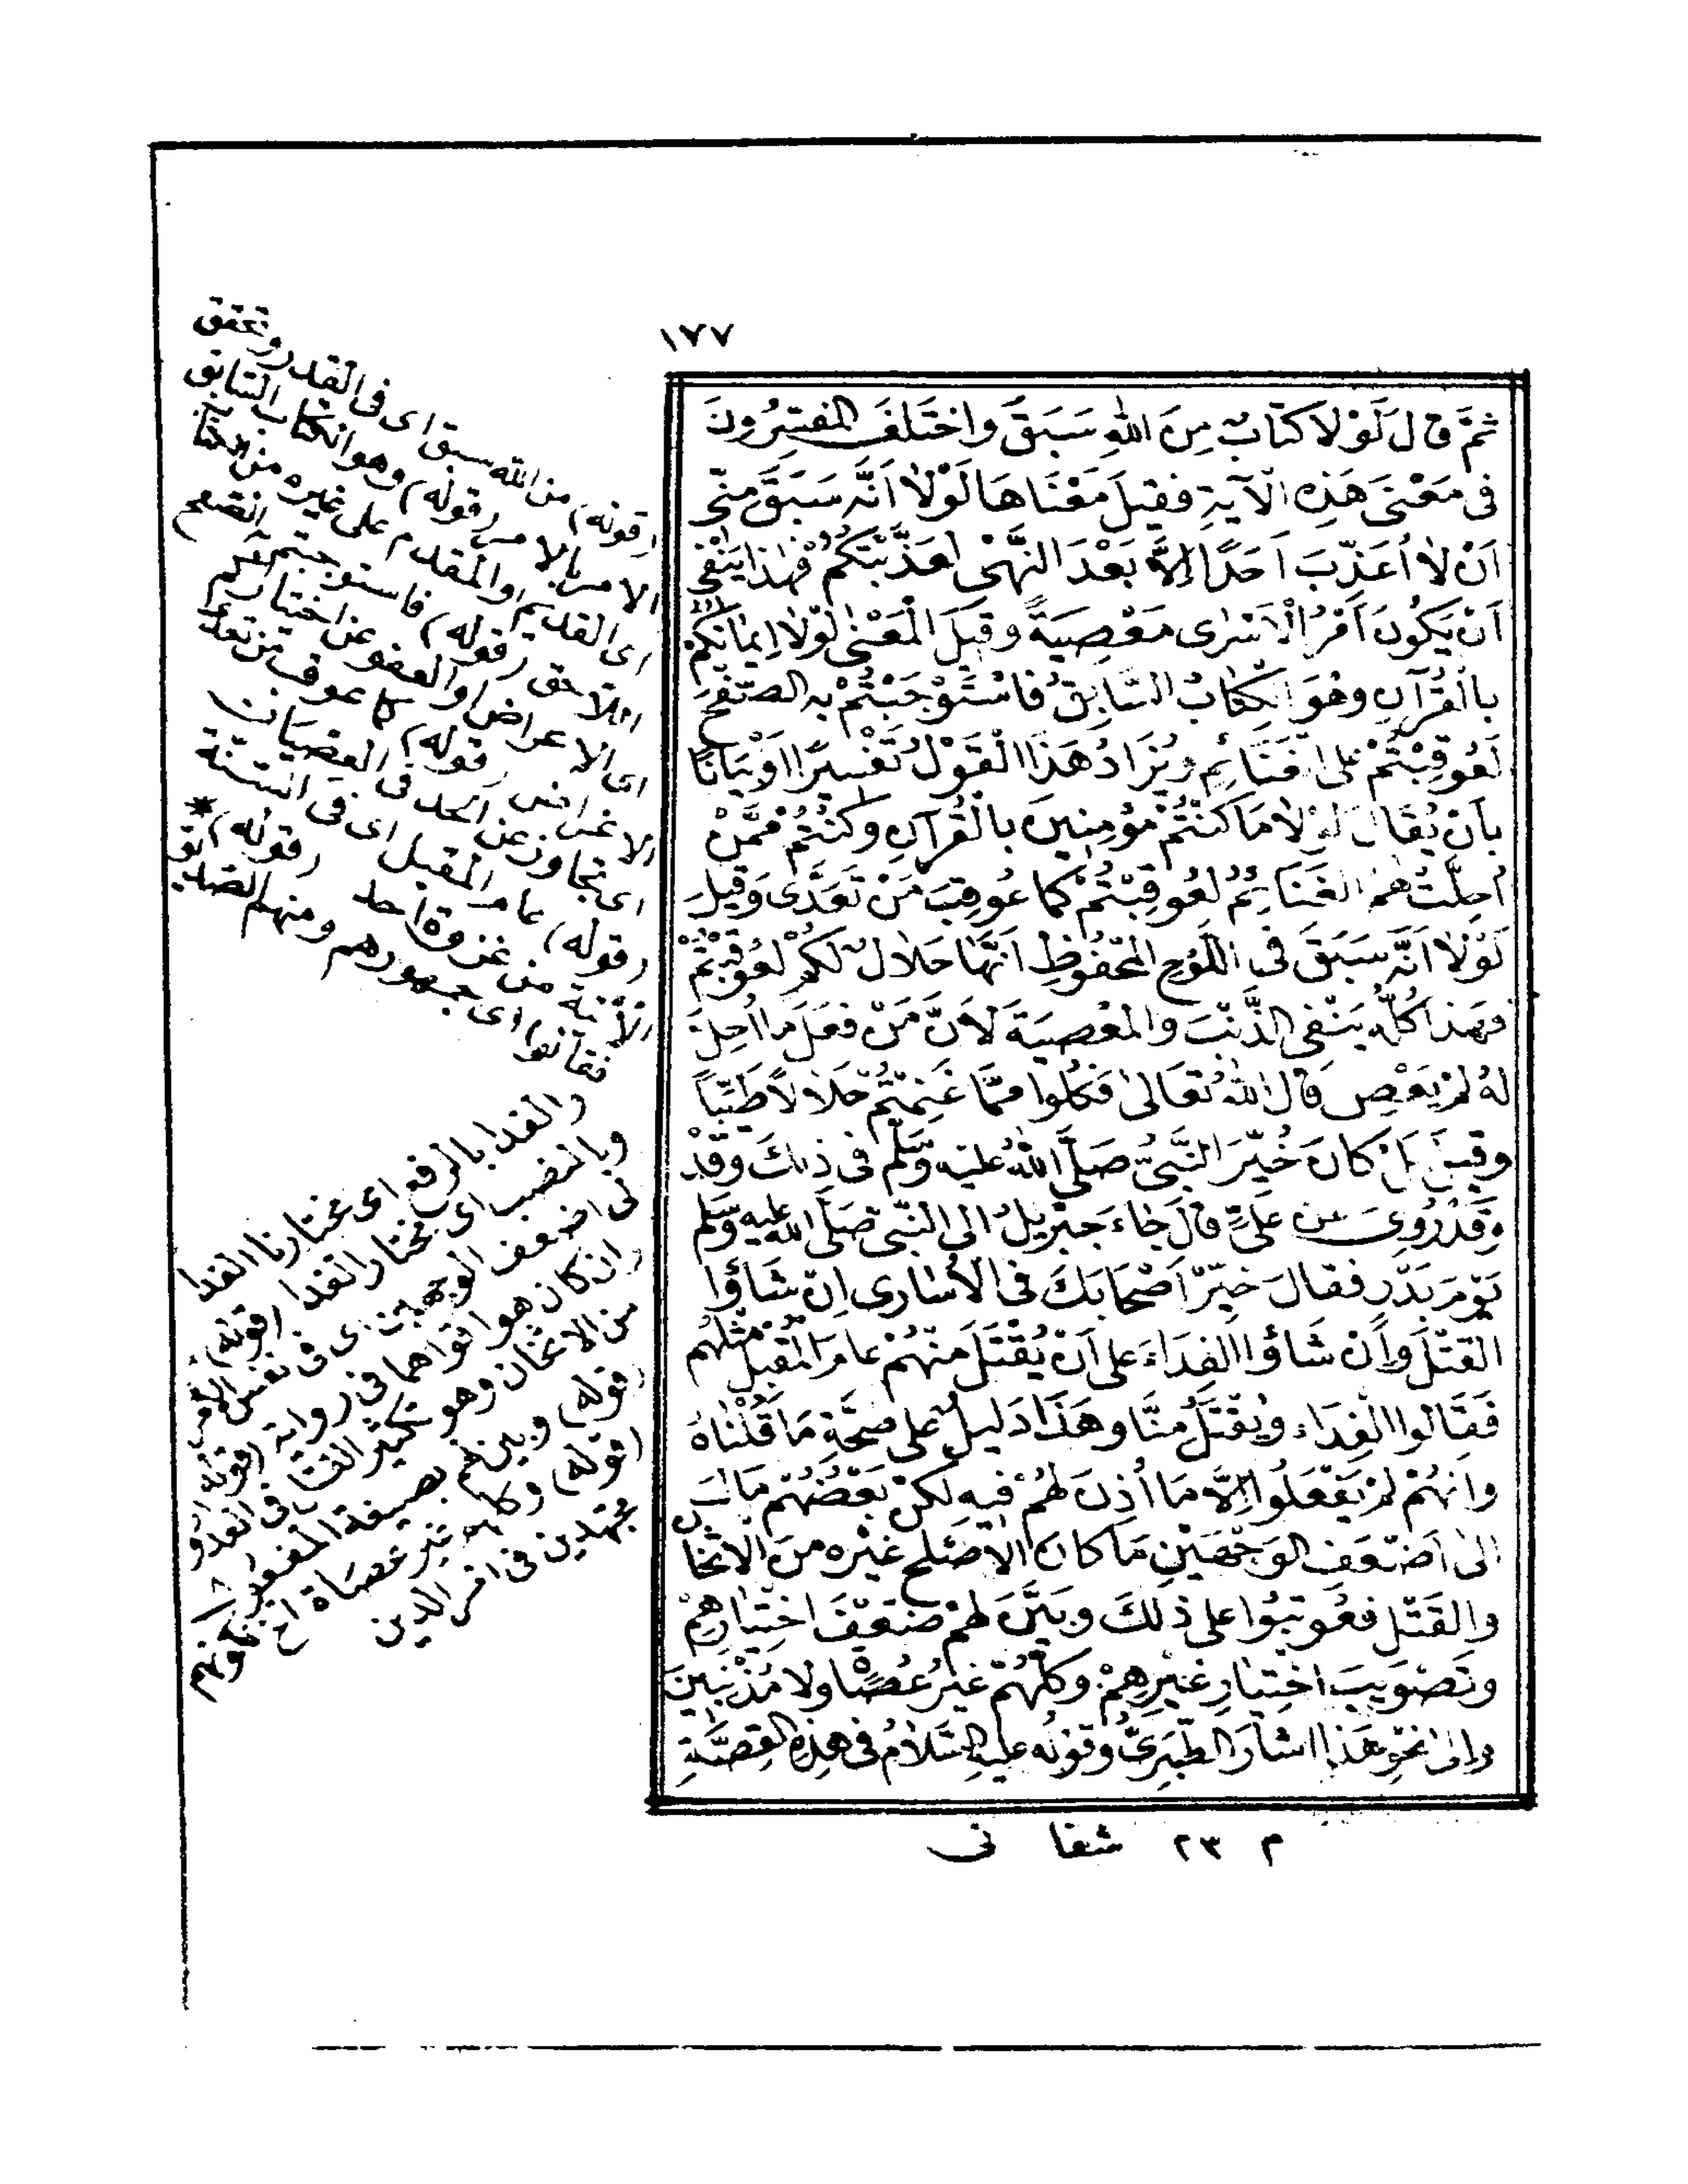 ١٧٧
ثُمَّ قَالَ لَوْلَا كِتَابٌ مِنَ اللهِ سَبَقَ وَاخْتَلَفَ الْمُفَسِّرُونَ
فِى مَعْنَى هٰذِهِ الْآيَةِ فَقِيلَ مَعْنَاهَا لَوْلَا اَنَّهُ سَبَقَ مِنِّى
اَنْ لَا اُعَذِّبَ اَحَدًا اِلَّا بَعْدَ النَّهْىِ لَعَذَّبْتُكُمْ فَهٰذَا يَنْفِى
اَنْ يَكُونَ اَمْرُ الْاَسْرٰى مَعْصِيَةً وَقِيلَ الْمَعْنٰى لَوْلَا اِيمَانُكُمْ
بِالْقُرْآنِ وَهُوَ الْكِتَابُ السَّابِقُ فَاسْتَوْجَبْتُمْ بِهِ الصَّفْحَ
لَعُوقِبْتُمْ عَلَى الْغَنَائِمِ وَيُزَادُ هٰذَا الْقَوْلُ تَفْسِيرًا وَبَيَانًا
بِاَنْ يُقَالَ لَوْلَا مَا كُنْتُمْ مُؤْمِنِينَ بِالْقُرْآنِ وَكُنْتُمْ مِمَّنْ
اُحِلَّتْ لَهُمُ الْغَنَائِمُ لَعُوقِبْتُمْ كَمَا عُوقِبَ مَنْ تَعَدَّى وَقِيلَ
لَوْلَا اَنَّهُ سَبَقَ فِى اللَّوْحِ الْمَحْفُوظِ اَنَّهَا حَلَالٌ لَكُمْ لَعُوقِبْتُمْ
فَهٰذَا كُلُّهُ يَنْفِى الذَّنْبَ وَالْمَعْصِيَةَ لِاَنَّ مَنْ فَعَلَ مَا اُحِلَّ
لَهُ لَمْ يَعْصِ قَالَ اللهُ تَعَالٰى فَكُلُوا مِمَّا غَنِمْتُمْ حَلَالًا طَيِّبًا
وَقِيلَ بَلْ كَانَ خُيِّرَ النَّبِىُّ صَلَّى اللهُ عَلَيْهِ وَسَلَّمَ فِى ذٰلِكَ وَقَدْ
وَقَدْ رُوِىَ عَنْ عَلِىٍّ قَالَ جَاءَ جِبْرِيلُ اِلَى النَّبِىِّ صَلَّى اللهُ عَلَيْهِ وَسَلَّمَ
يَوْمَ بَدْرٍ فَقَالَ خَيِّرْ اَصْحَابَكَ فِى الْاُسَارٰى اِنْ شَاؤُا
الْقَتْلَ وَاِنْ شَاؤُا الْفِدَاءَ عَلَى اَنْ يُقْتَلَ مِنْهُمْ عَامَ الْمُقْبِلِ مِثْلُهُمْ
فَقَالُوا الْفِدَاءَ وَيُقْتَلُ مِنَّا وَهٰذَا دَلِيلٌ عَلَى صِحَّةِ مَا قُلْنَاهُ
وَاَنَّهُمْ لَمْ يَفْعَلُوا اِلَّا مَا اُذِنَ لَهُمْ فِيهِ لٰكِنْ بَعْضُهُمْ مَالَ
اِلَى اَضْعَفِ الْوَجْهَيْنِ مِمَّا كَانَ الْاَصْلَحُ غَيْرَهُ مِنَ الْاِثْخَانِ
وَالْقَتْلِ فَعُوتِبُوا عَلَى ذٰلِكَ وَبُيِّنَ لَهُمْ ضَعْفُ اخْتِيَارِهِمْ
وَتَصْوِيبُ اخْتِيَارِ غَيْرِهِمْ وَكُلُّهُمْ غَيْرُ عُصَاةٍ وَلَا مُذْنِبِينَ
وَاِلٰى نَحْوِ هٰذَا اَشَارَ الطَّبَرِىُّ وَقَوْلُهُ عَلَيْهِ السَّلَامُ فِى هٰذِهِ الْقِصَّةِ
م ٢٣ شفا نى
(قوله) من الله سبق اى فى القدر وتحقق
الامر بالامس (قوله) وهو الكتاب السابق
اى القديم او المقدم على غيره من
اللاحق (قوله) فاستوجبتم الصفح
اى الاعراض او العفو عن اختياركم
الاغراض (قوله) كما عوقب من تعدى
اى تجاوز عن الحد فى العصيان
(قوله) عام المقبل اى فى السنة
الآتية من غزوة احد (قوله) *
فقالوا اى جمهورهم ومنهم الصديق
والفدا بالرفع اى مختارنا الفدا
وبالنصب اى نختار الفدا (قوله)
الى اضعف الوجهين اى فى نفس الامر
وان كان هو اقواهما فى رواية (قوله)
من الاثخان وهو تكثير القتل فى العدو
(قوله) وبين لهم بصيغة المفعول
(قوله) وكلهم غير عصاة اخ لكونهم
مجتهدين فى امر الدين